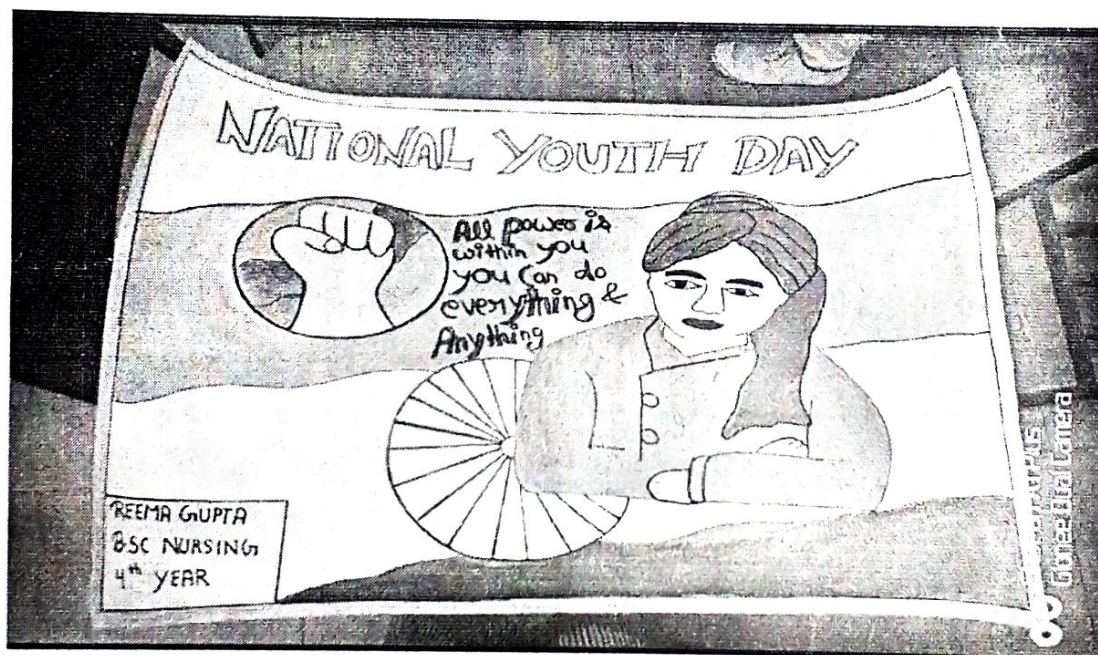 NATIONAL YOUTH DAY
All power is
within you
you Can do
everything &
Anything
REEMA GUPTA
BSC NURSING
4th YEAR